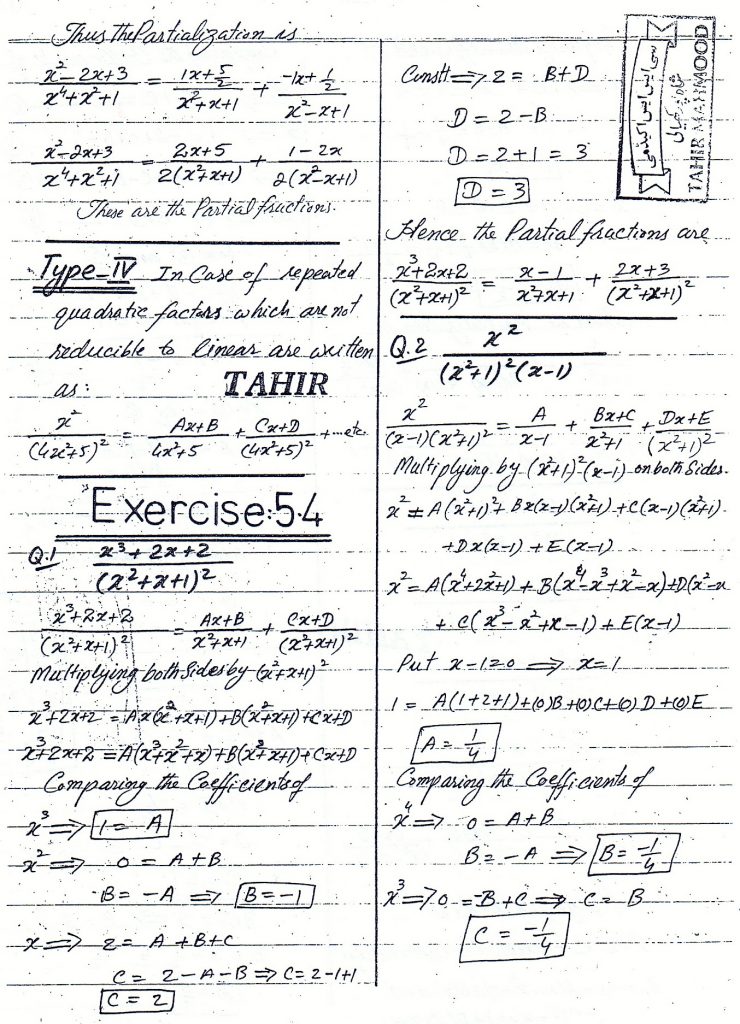 Thus the Partialization is
x²-2x+3 / x⁴+x²+1 = 1x+5/2 / x²+x+1 + -1x+1/2 / x²-x+1
x²-2x+3 / x⁴+x²+1 = 2x+5 / 2(x²+x+1) + 1-2x / 2(x²-x+1)
These are the Partial fractions.
Type-IV In Case of repeated
quadratic factors which are not
reducible to linear are written
as: TAHIR
x² / (4x²+5)² = Ax+B / 4x²+5 + Cx+D / (4x²+5)² +---etc.
Exercise:5.4
Q.1 x³+2x+2 / (x²+x+1)²
x³+2x+2 / (x²+x+1)² = Ax+B / x²+x+1 + Cx+D / (x²+x+1)²
Multiplying both Sides by (x²+x+1)²
x³+2x+2 = Ax(x²+x+1)+B(x²+x+1)+Cx+D
x³+2x+2 = A(x³+x²+x)+B(x²+x+1)+Cx+D
Comparing the Coefficients of
x³ ⇒ 1 = A
x² ⇒ 0 = A+B
B = -A ⇒ B=-1
x ⇒ 2 = A+B+C
C = 2-A-B ⇒ C=2-1+1
C = 2
Constt ⇒ 2 = B+D
D = 2-B
D = 2+1 = 3
D = 3
سی ایس ایس اکیڈمی
TAHIR MAHMOOD
Hence the Partial fractions are
x³+2x+2 / (x²+x+1)² = x-1 / x²+x+1 + 2x+3 / (x²+x+1)²
Q.2 x² / (x²+1)²(x-1)
x² / (x-1)(x²+1)² = A / x-1 + Bx+C / x²+1 + Dx+E / (x²+1)²
Multiplying by (x²+1)²(x-1) on both Sides.
x² = A(x²+1)²+Bx(x-1)(x²+1)+C(x-1)(x²+1)
+Dx(x-1)+E(x-1)
x² = A(x⁴+2x²+1)+B(x⁴-x³+x²-x)+D(x²-x
+ C(x³-x²+x-1)+E(x-1)
Put x-1=0 ⇒ x=1
1 = A(1+2+1)+(0)B+(0)C+(0)D+(0)E
A = 1/4
Comparing the Coefficients of
x⁴ ⇒ 0 = A+B
B = -A ⇒ B = -1/4
x³ ⇒ 0 = -B+C ⇒ C = B
C = -1/4